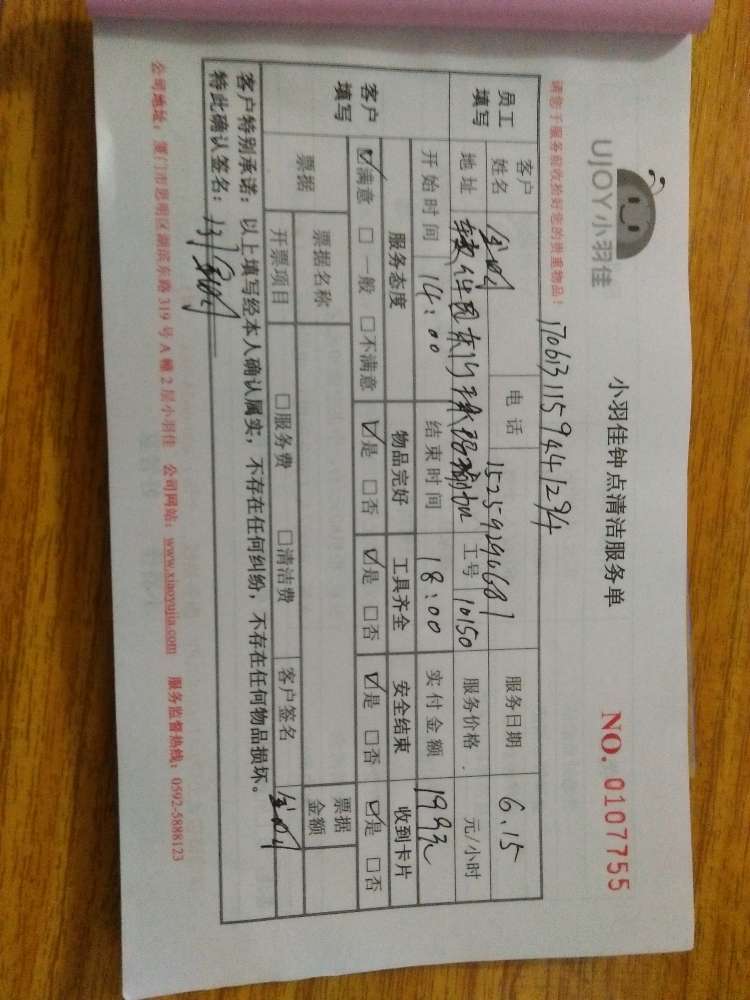 UJOY小羽佳
小羽佳钟点清洁服务单
NO. 0107755
请您于服务前收拾好您的贵重物品！
1706131159441294
员工填写
客户姓名 电话 15259290681 服务日期 6.15
地址 工号 10150 服务价格 元/小时
开始时间 14:00 结束时间 18:00 实付金额 199元
客户填写
服务态度 物品完好 工具齐全 安全结束 收到卡片
☑满意 □一般 □不满意 ☑是 □否 ☑是 □否 ☑是 □否 ☑是 □否
票据 票据名称 票据金额
开票项目 □服务费 □清洁费 客户签名
客户特别承诺：以上填写经本人确认属实，不存在任何纠纷，不存在任何物品损坏。
特此确认签名：
公司地址：厦门市思明区湖滨东路319号A幢2层小羽佳 公司网站：www.xiaoyujia.com 服务监督热线：0592-5888123